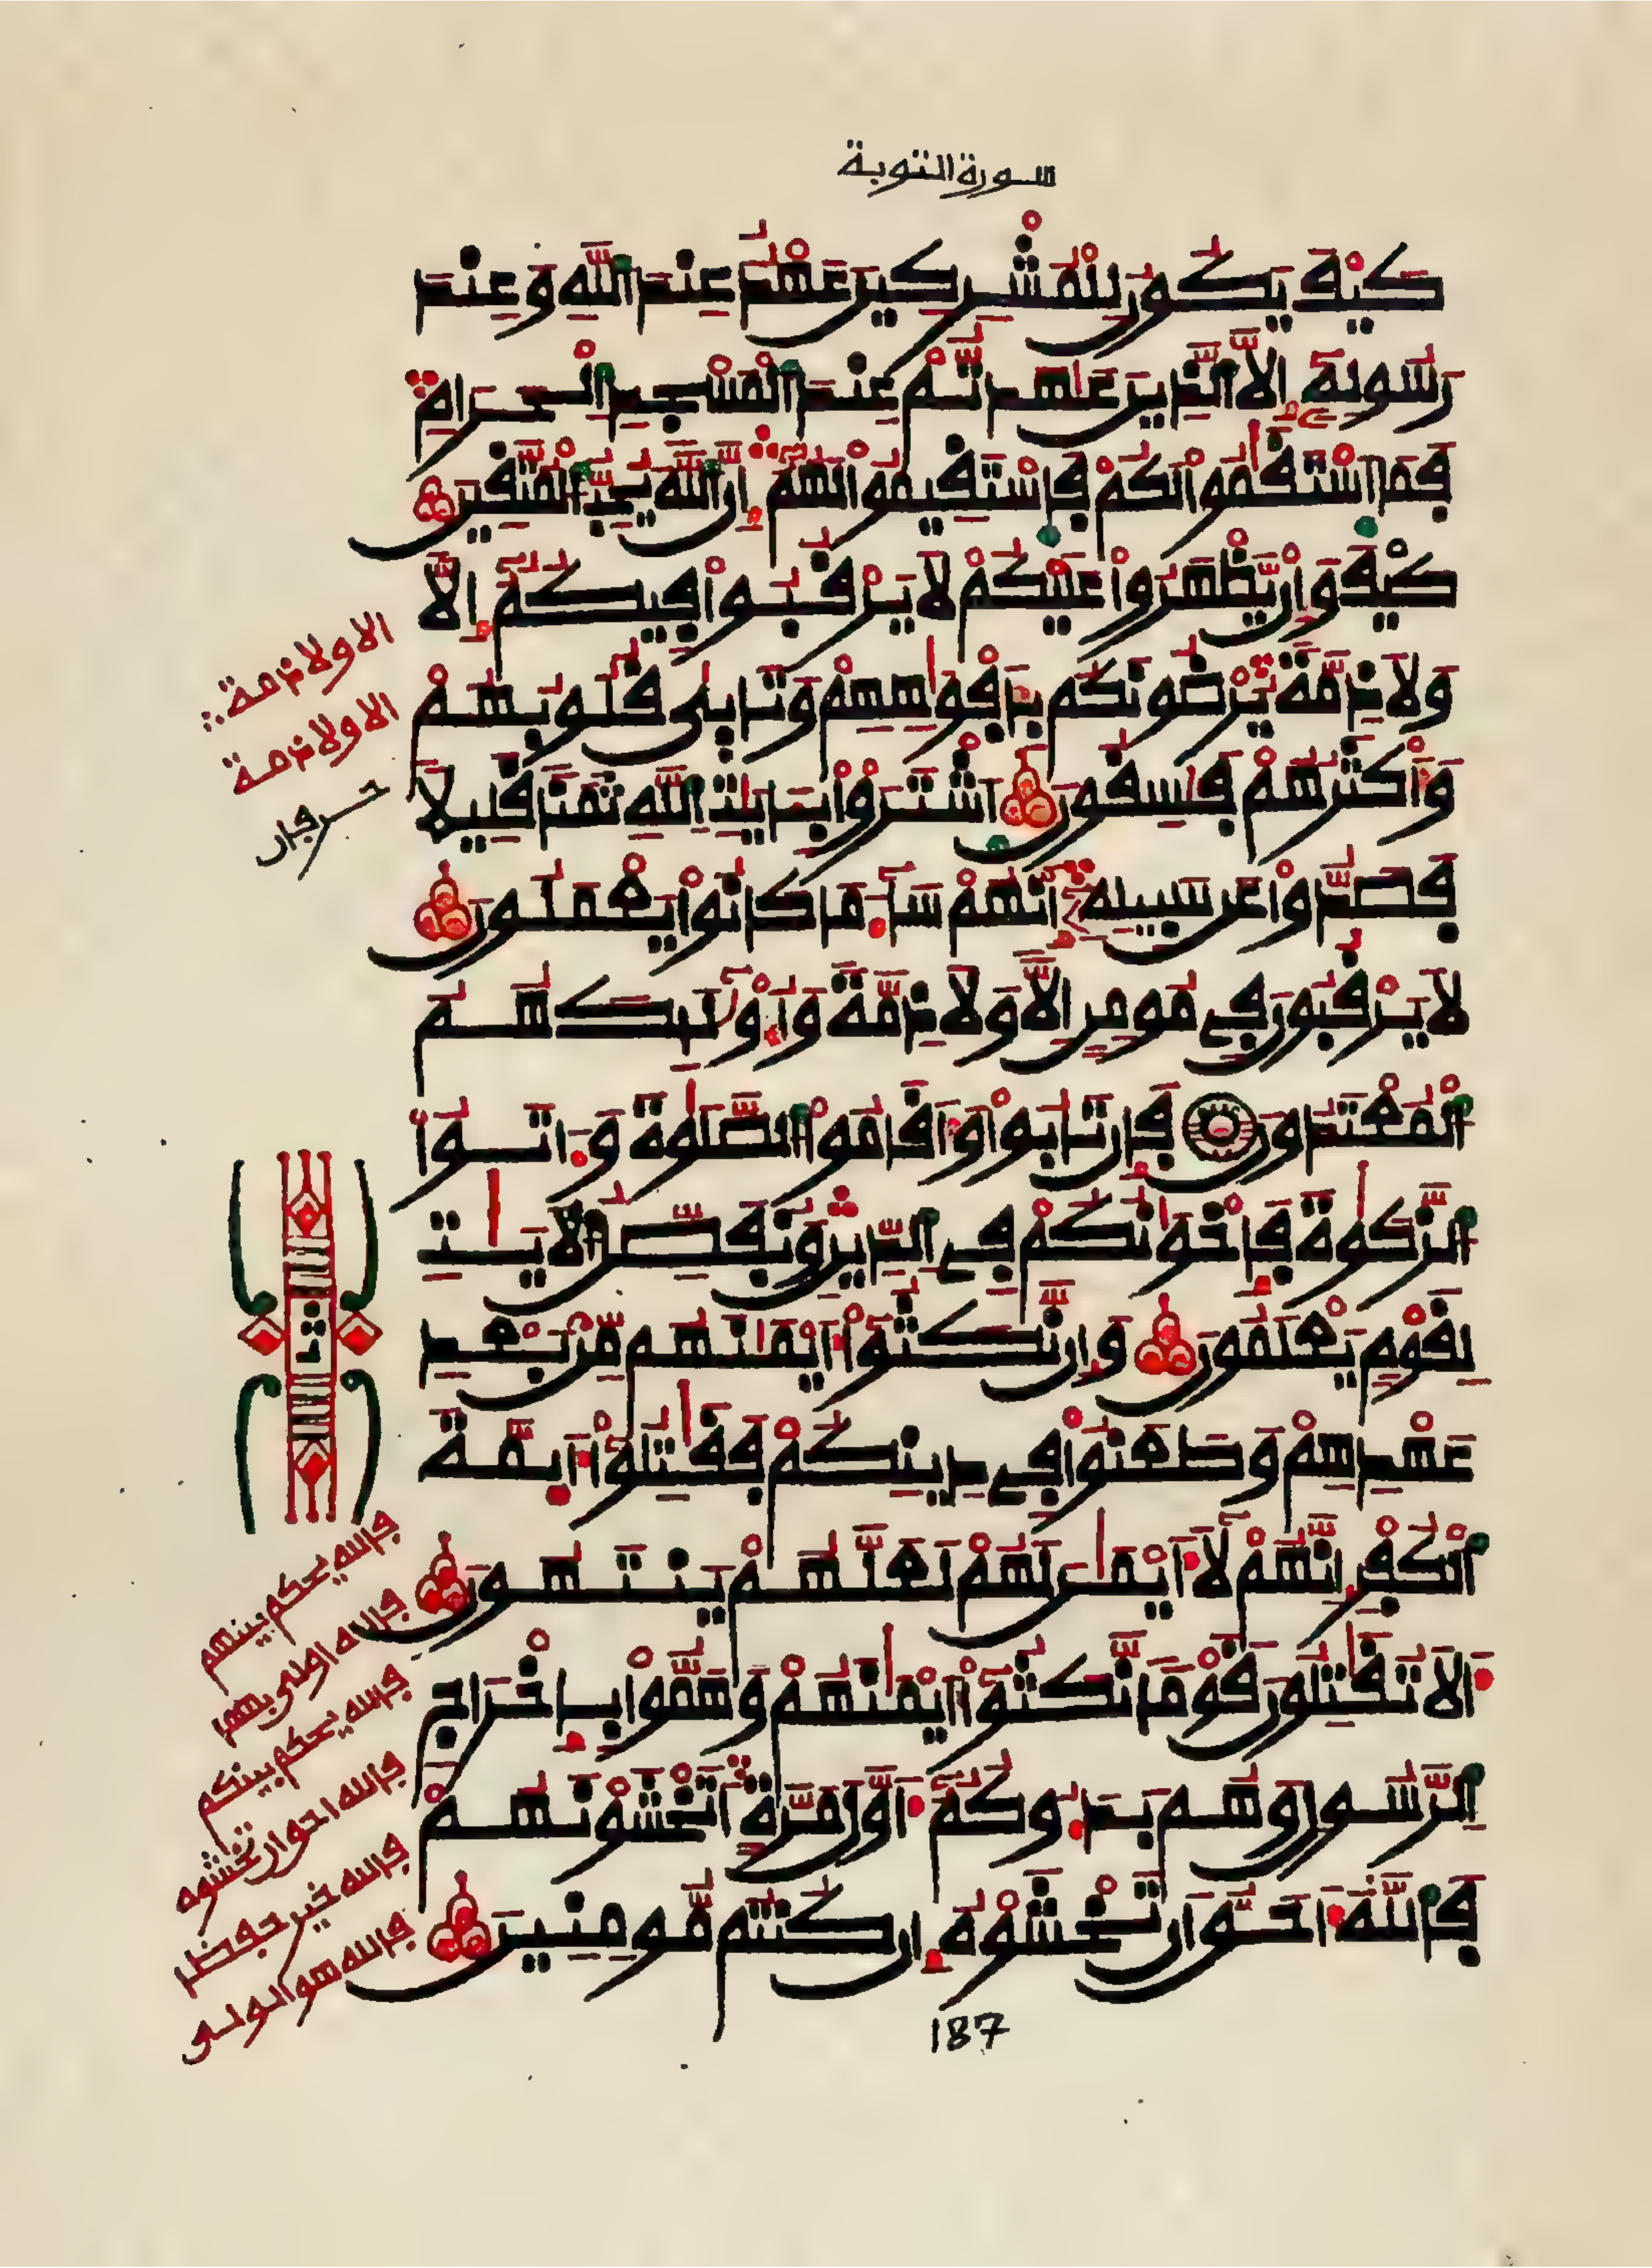 سورة التوبة
كَيْفَ يَكُونُ لِلْمُشْرِكِينَ عَهْدٌ عِندَ اَللَّهِ وَعِندَ
رَسُولِهِۦٓ إِلَّا اَلذِينَ عَٰهَدتُّمْ عِندَ اَلْمَسْجِدِ اِلْحَرَامِ
فَمَا اَسْتَقَٰمُواْ لَكُمْ فَاسْتَقِيمُواْ لَهُمُۥٓ إِنَّ اَللَّهَ يُحِبُّ اُلْمُتَّقِينَ
كَيْفَ وَإِن يَّظْهَرُواْ عَلَيْكُمْ لَا يَرْقُبُواْ فِيكُمُۥٓ إِلّاٗ
وَلَا ذِمَّةٗ يُرْضُونَكُم بِأَفْوَٰهِهِمْ وَتَأْبَىٰ قُلُوبُهُمْ
وَأَكْثَرُهُمْ فَٰسِقُونَ اَشْتَرَوْاْ بِـَٔايَٰتِ اِللَّهِ ثَمَناٗ قَلِيلاٗ
فَصَدُّواْ عَن سَبِيلِهِۦٓ إِنَّهُمْ سَآءَ مَا كَانُواْ يَعْمَلُونَ
لَا يَرْقُبُونَ فِي مُومِنٍ إِلّاٗ وَلَا ذِمَّةٗ وَأُوْلَٰٓئِكَ هُمُ
اُلْمُعْتَدُونَ فَإِن تَابُواْ وَأَقَامُواْ اُلصَّلَوٰةَ وَءَاتَوُاْ
اُلزَّكَوٰةَ فَإِخْوَٰنُكُمْ فِي اِلدِّينِ وَنُفَصِّلُ اُلَايَٰتِ
لِقَوْمٖ يَعْلَمُونَ وَإِن نَّكَثُوٓاْ أَيْمَٰنَهُم مِّنۢ بَعْدِ
عَهْدِهِمْ وَطَعَنُواْ فِي دِينِكُمْ فَقَٰتِلُوٓاْ أَئِمَّةَ
اَلْكُفْرِ إِنَّهُمْ لَآ أَيْمَٰنَ لَهُمْ لَعَلَّهُمْ يَنتَهُونَ
أَلَا تُقَٰتِلُونَ قَوْماٗ نَّكَثُوٓاْ أَيْمَٰنَهُمْ وَهَمُّواْ بِإِخْرَاجِ
اِلرَّسُولِ وَهُم بَدَءُوكُمُۥٓ أَوَّلَ مَرَّةٍ اَتَخْشَوْنَهُمْ
فَاللَّهُ أَحَقُّ أَن تَخْشَوْهُ إِن كُنتُم مُّومِنِينَ
الا ولا ذمة
الا ولا ذمة
حرفان
ثمن
فالله يحكم بينهم
فالله اولى بهما
فالله يحكم بينكم
فالله احق ان تخشوه
فالله خير حفظا
فالله هو الولي
187